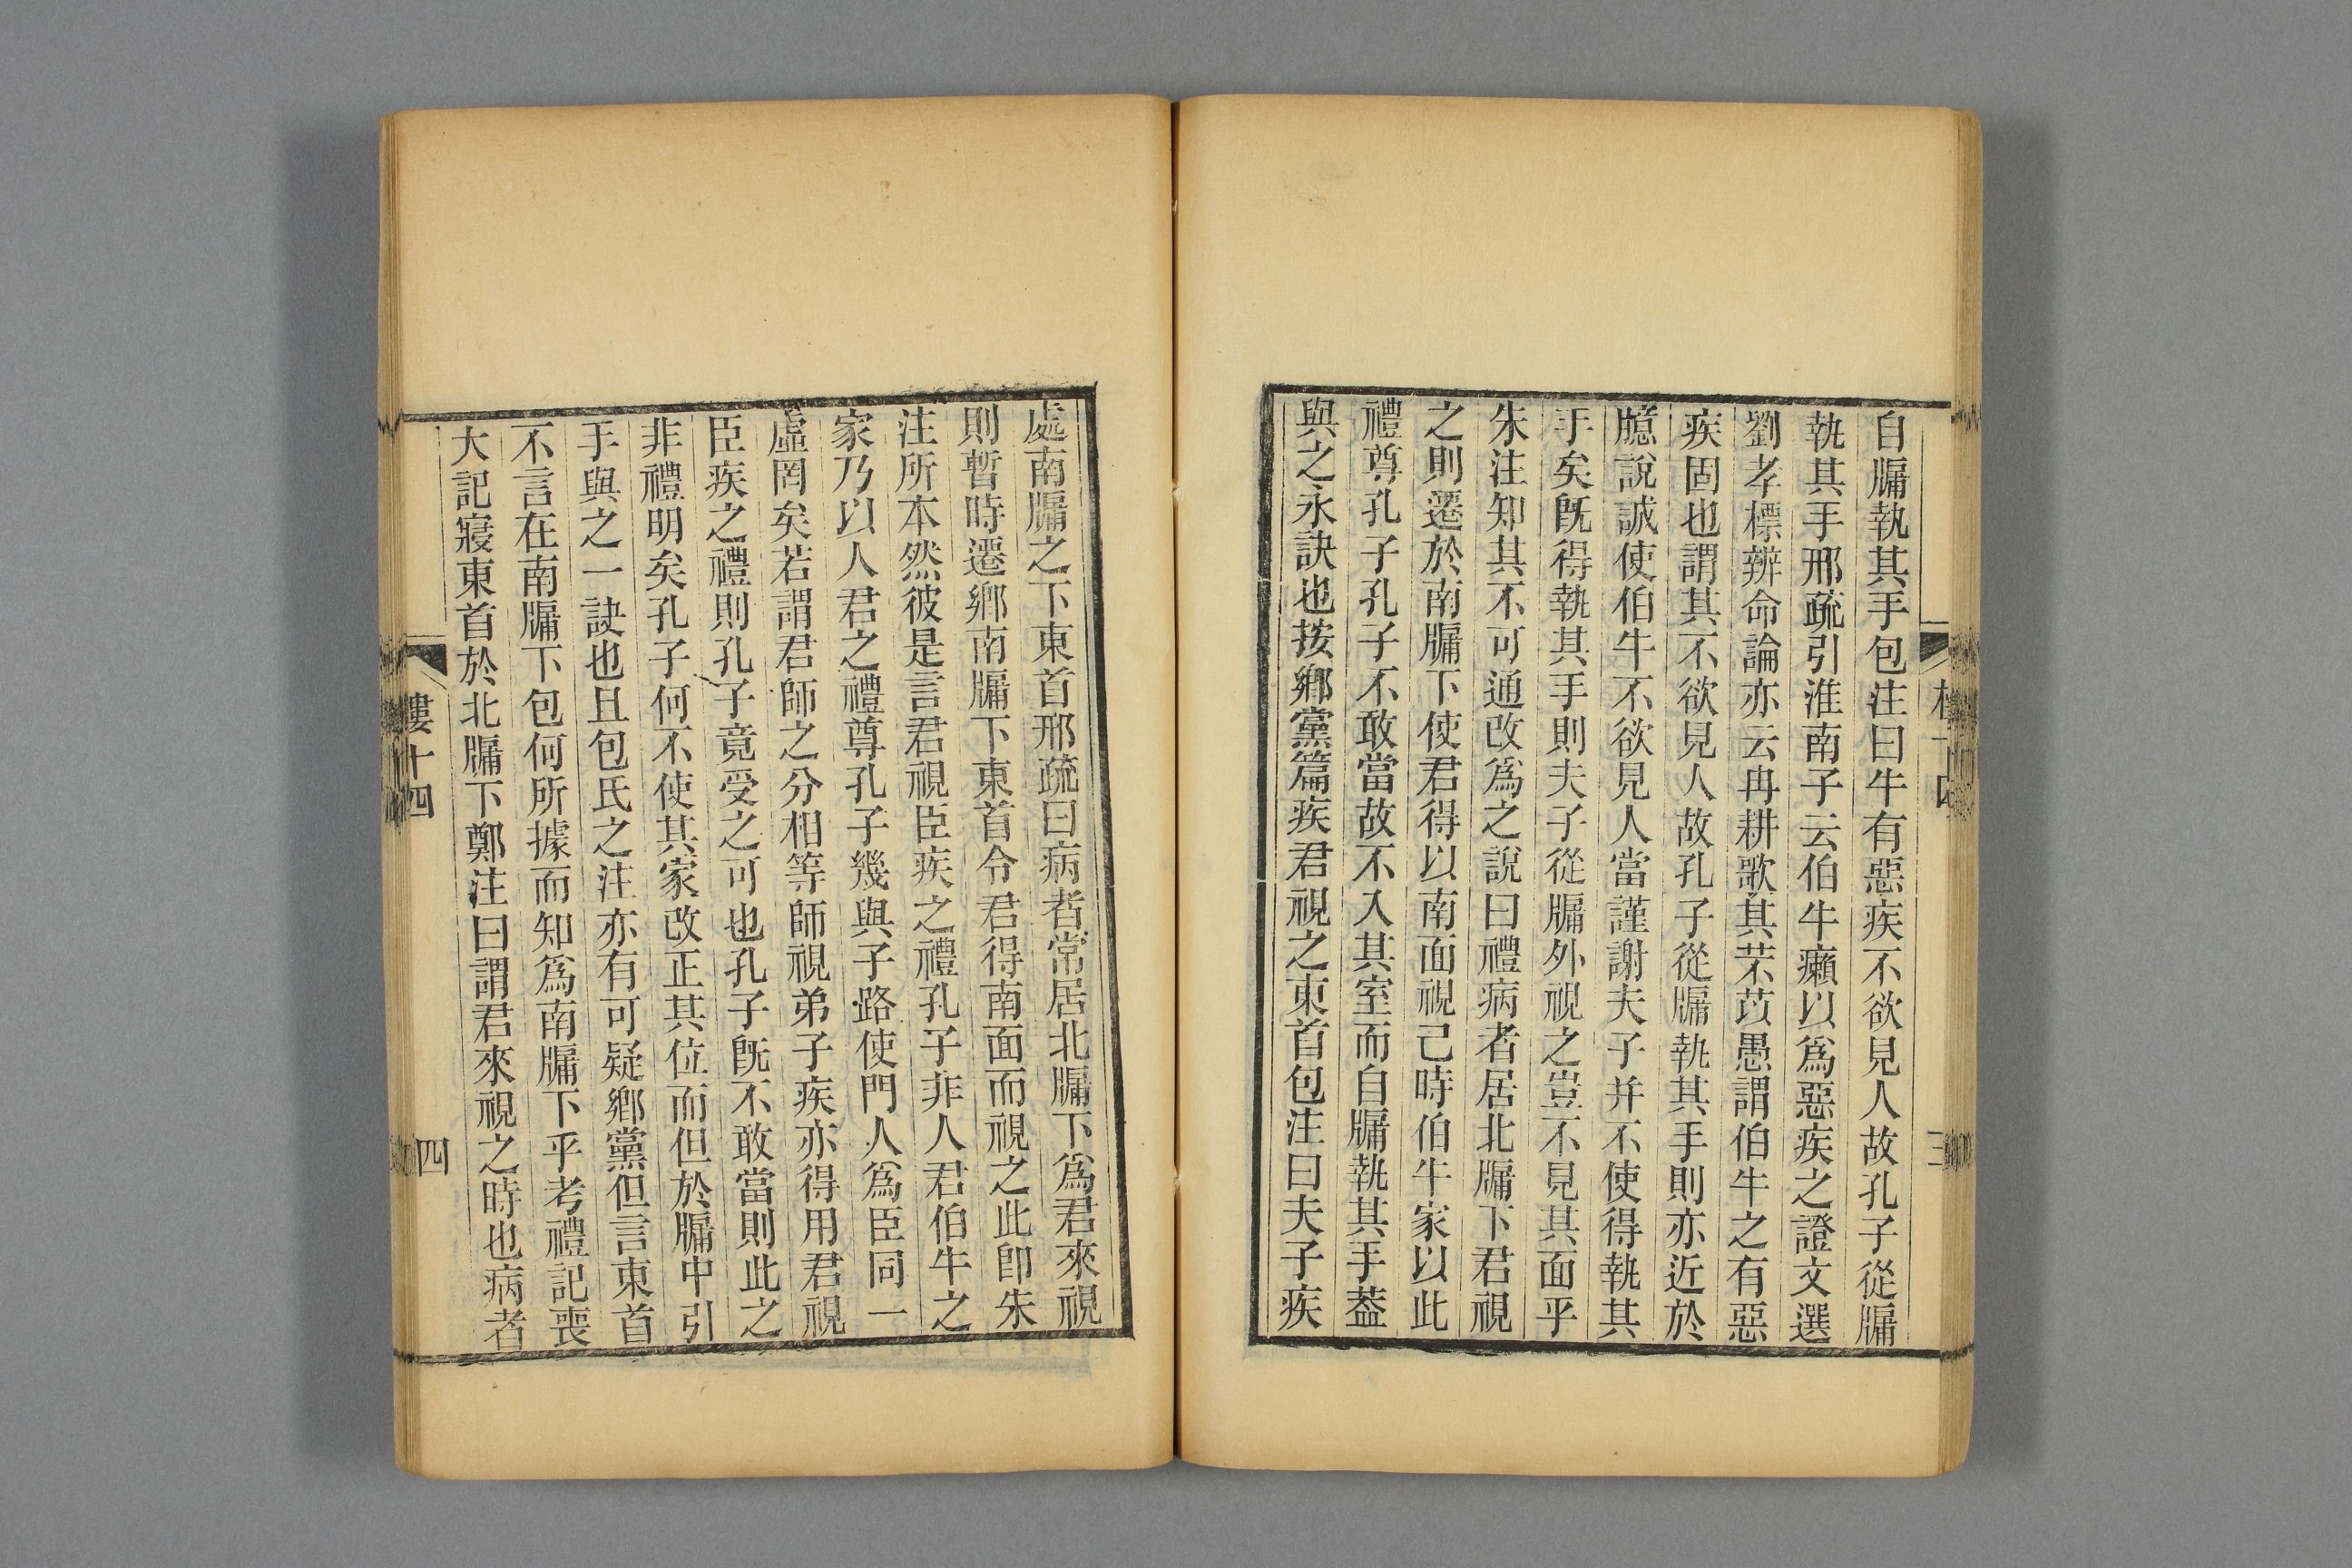 自牖執其手包注曰牛有惡疾不欲見人故孔子從牖
執其手邢疏引淮南子云伯牛癩以爲惡疾之證文選
劉孝標辨命論亦云冉耕歌其芣苡愚謂伯牛之有惡
疾固也謂其不欲見人故孔子從牖執其手則亦近於
臆說誠使伯牛不欲見人當謹謝夫子并不使得執其
手矣旣得執其手則夫子從牖外視之豈不見其面乎
朱注知其不可通改爲之說曰禮病者居北牖下君視
之則遷於南牖下使君得以南面視己時伯牛家以此
禮尊孔子孔子不敢當故不入其室而自牖執其手葢
與之永訣也按鄉黨篇疾君視之東首包注曰夫子疾
處南牖之下東首邢疏曰病者常居北牖下爲君來視
則暫時遷鄉南牖下東首令君得南面而視之此卽朱
注所本然彼是言君視臣疾之禮孔子非人君伯牛之
家乃以人君之禮尊孔子幾與子路使門人爲臣同一
虛罔矣若謂君師之分相等師視弟子疾亦得用君視
臣疾之禮則孔子竟受之可也孔子旣不敢當則此之
非禮明矣孔子何不使其家改正其位而但於牖中引
手與之一訣也且包氏之注亦有可疑鄉黨但言東首
不言在南牖下包何所據而知爲南牖下乎考禮記喪
大記寢東首於北牖下鄭注曰謂君來視之時也病者
樓十四
四